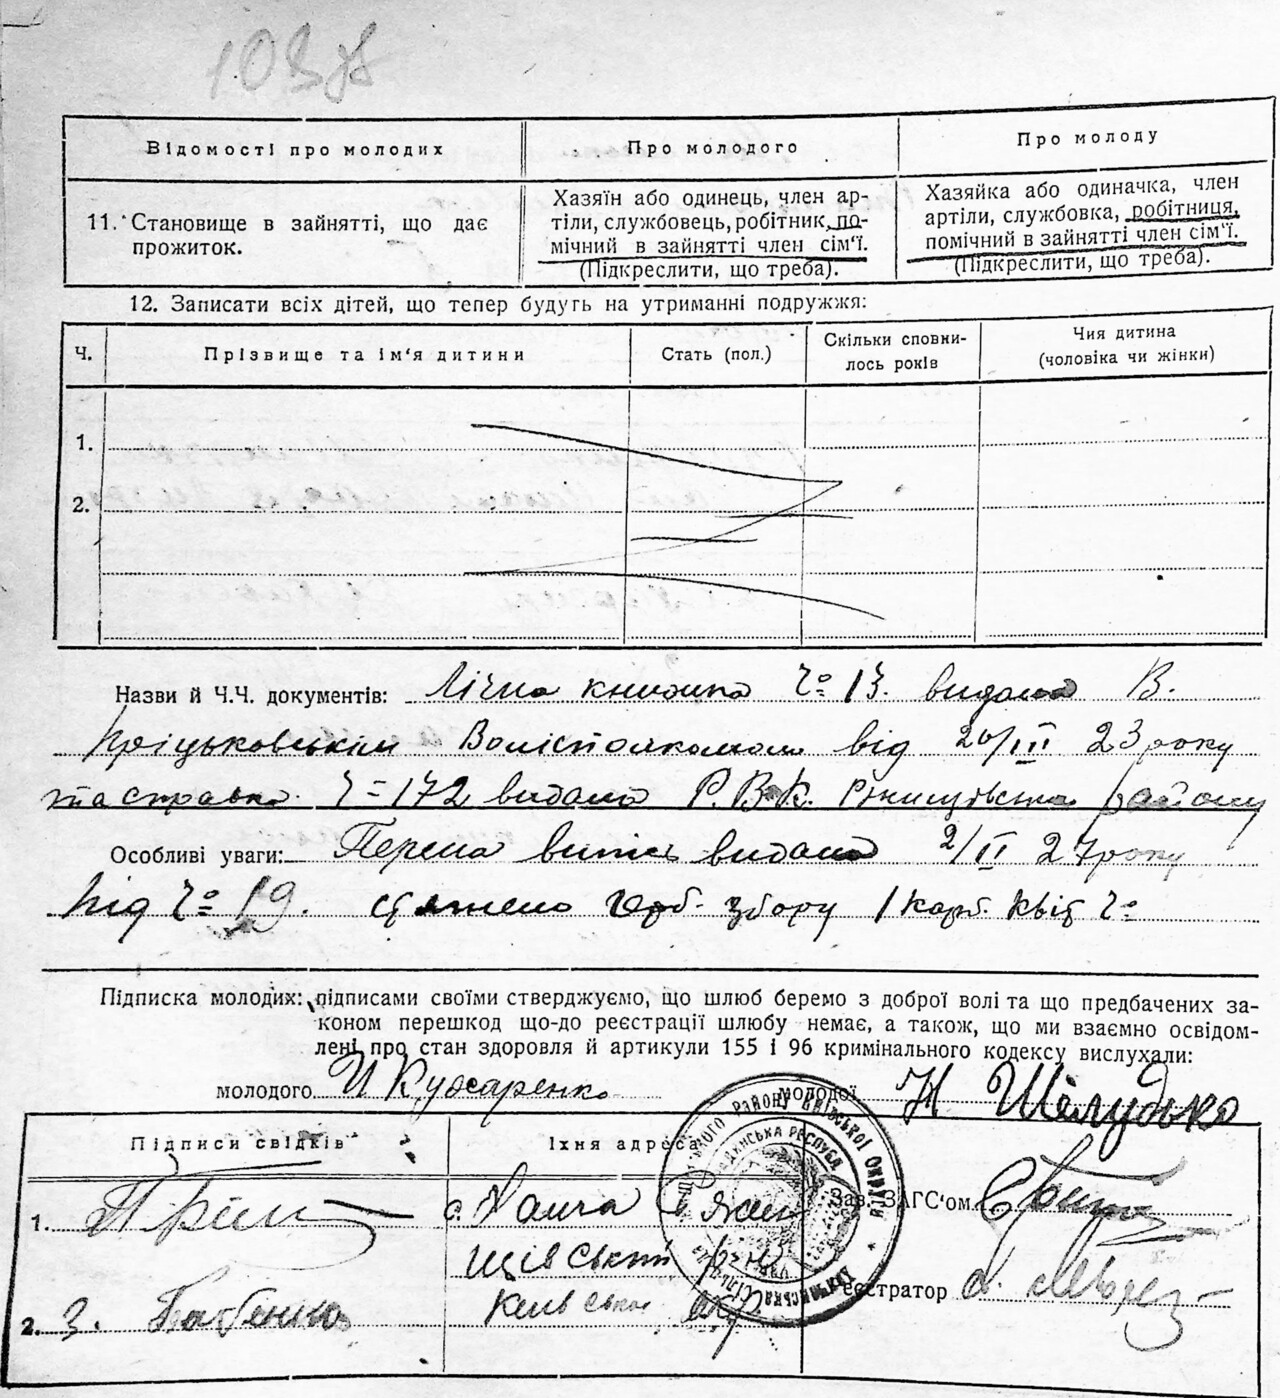 Відомості про молодих
Про молодого
Про молоду
11. Становище в зайнятті, що дає прожиток.
Хазяїн або одинець, член ар-
тіли, службовець, робітник, по-
мічний в зайнятті член сім'ї.
(Підкреслити, що треба).
Хазяйка або одиначка, член
артіли, службовка, робітниця,
помічний в зайнятті член сім'ї.
(Підкреслити, що треба).
12. Записати всіх дітей, що тепер будуть на утриманні подружжя:
Ч.
Прізвище та ім'я дитини
Стать (пол.)
Скільки сповни-
лось років
Чия дитина
(чоловіка чи жінки)
1.
2.
Назви й Ч.Ч. документів: Лічна книжка Ч° 13. видана В.
від 20/III 23 року
та справка Ч= 172 видана Р.В.К. району
Особливі уваги: Перша витісь видана 2/II 27 року
під Ч° 19. стяжено герб. збору 1 карб. квіт Ч°
Підписка молодих: підписами своїми стверджуємо, що шлюб беремо з доброї волі та що предбачених за-
коном перешкод що-до реєстрації шлюбу немає, а також, що ми взаємно освідом-
лені про стан здоров'я й артикули 155 і 96 кримінального кодексу вислухали:
молодого И Кухаренко
молодої Н Шелудько
Підписи свідків
Їхня адреса
1.
с.
щівський р-н
2. З. Бабенко
Зав. ЗАГС'ом
Реєстратор
району Київської Округи